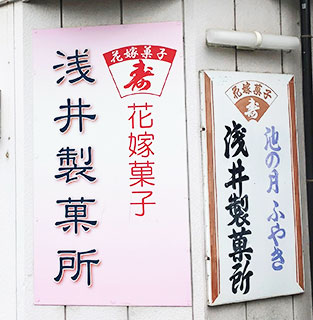 花嫁菓子
寿
花嫁菓子
浅井製菓所
花嫁菓子
寿
池の月 ふやき
浅井製菓所